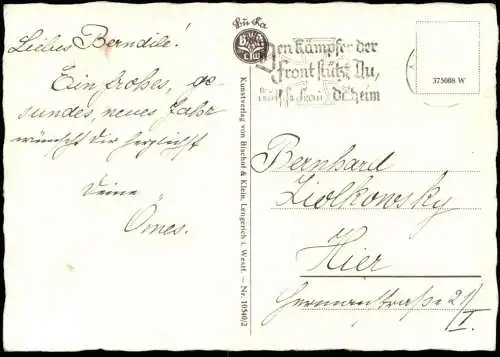 Liebes Berndile!
Ein frohes, ge-
sundes, neues Jahr
wünscht dir herzlichst
Deine
Ömes.
Bü Ka
B K
Kunstverlag von Bischof & Klein, Lengerich i. Westf. — Nr. 10540/2
Den Kämpfer der
Front stützt Du,
Frau daheim
375008 W
Bernhard
Ziolkowsky
Hier
Hermannstraße 21/I.